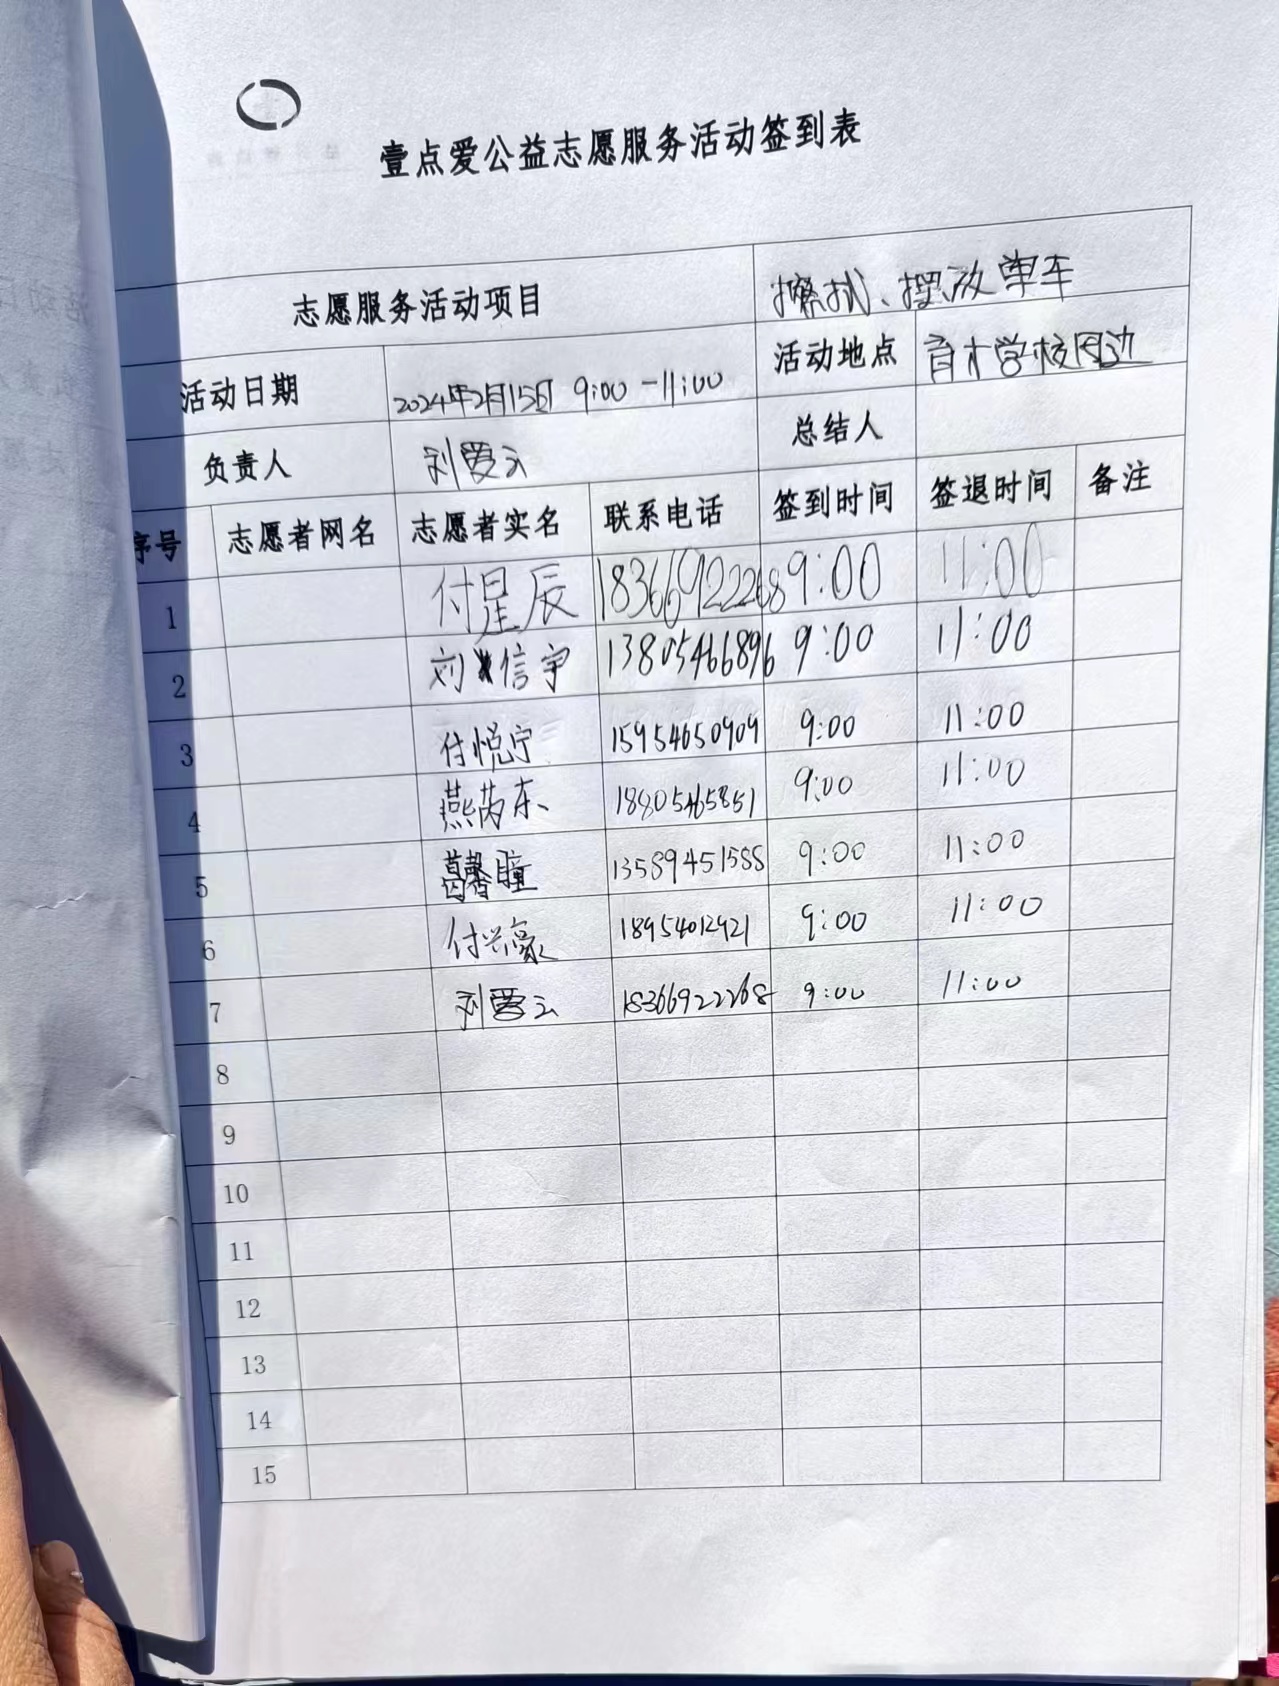 壹点爱公益志愿服务活动签到表
志愿服务活动项目 擦拭、摆放单车
活动日期 2024年2月15日 9:00-11:00 活动地点 育才学校周边
负责人 刘爱云 总结人
序号 志愿者网名 志愿者实名 联系电话 签到时间 签退时间 备注
1 付星辰 18366922268 9:00 11:00
2 刘信宇 13805466896 9:00 11:00
3 付悦宁 15954650909 9:00 11:00
4 燕芮东 18805465851 9:00 11:00
5 葛馨瞳 13589451588 9:00 11:00
6 付兴豪 18954012921 9:00 11:00
7 刘爱云 18366922268 9:00 11:00
8
9
10
11
12
13
14
15